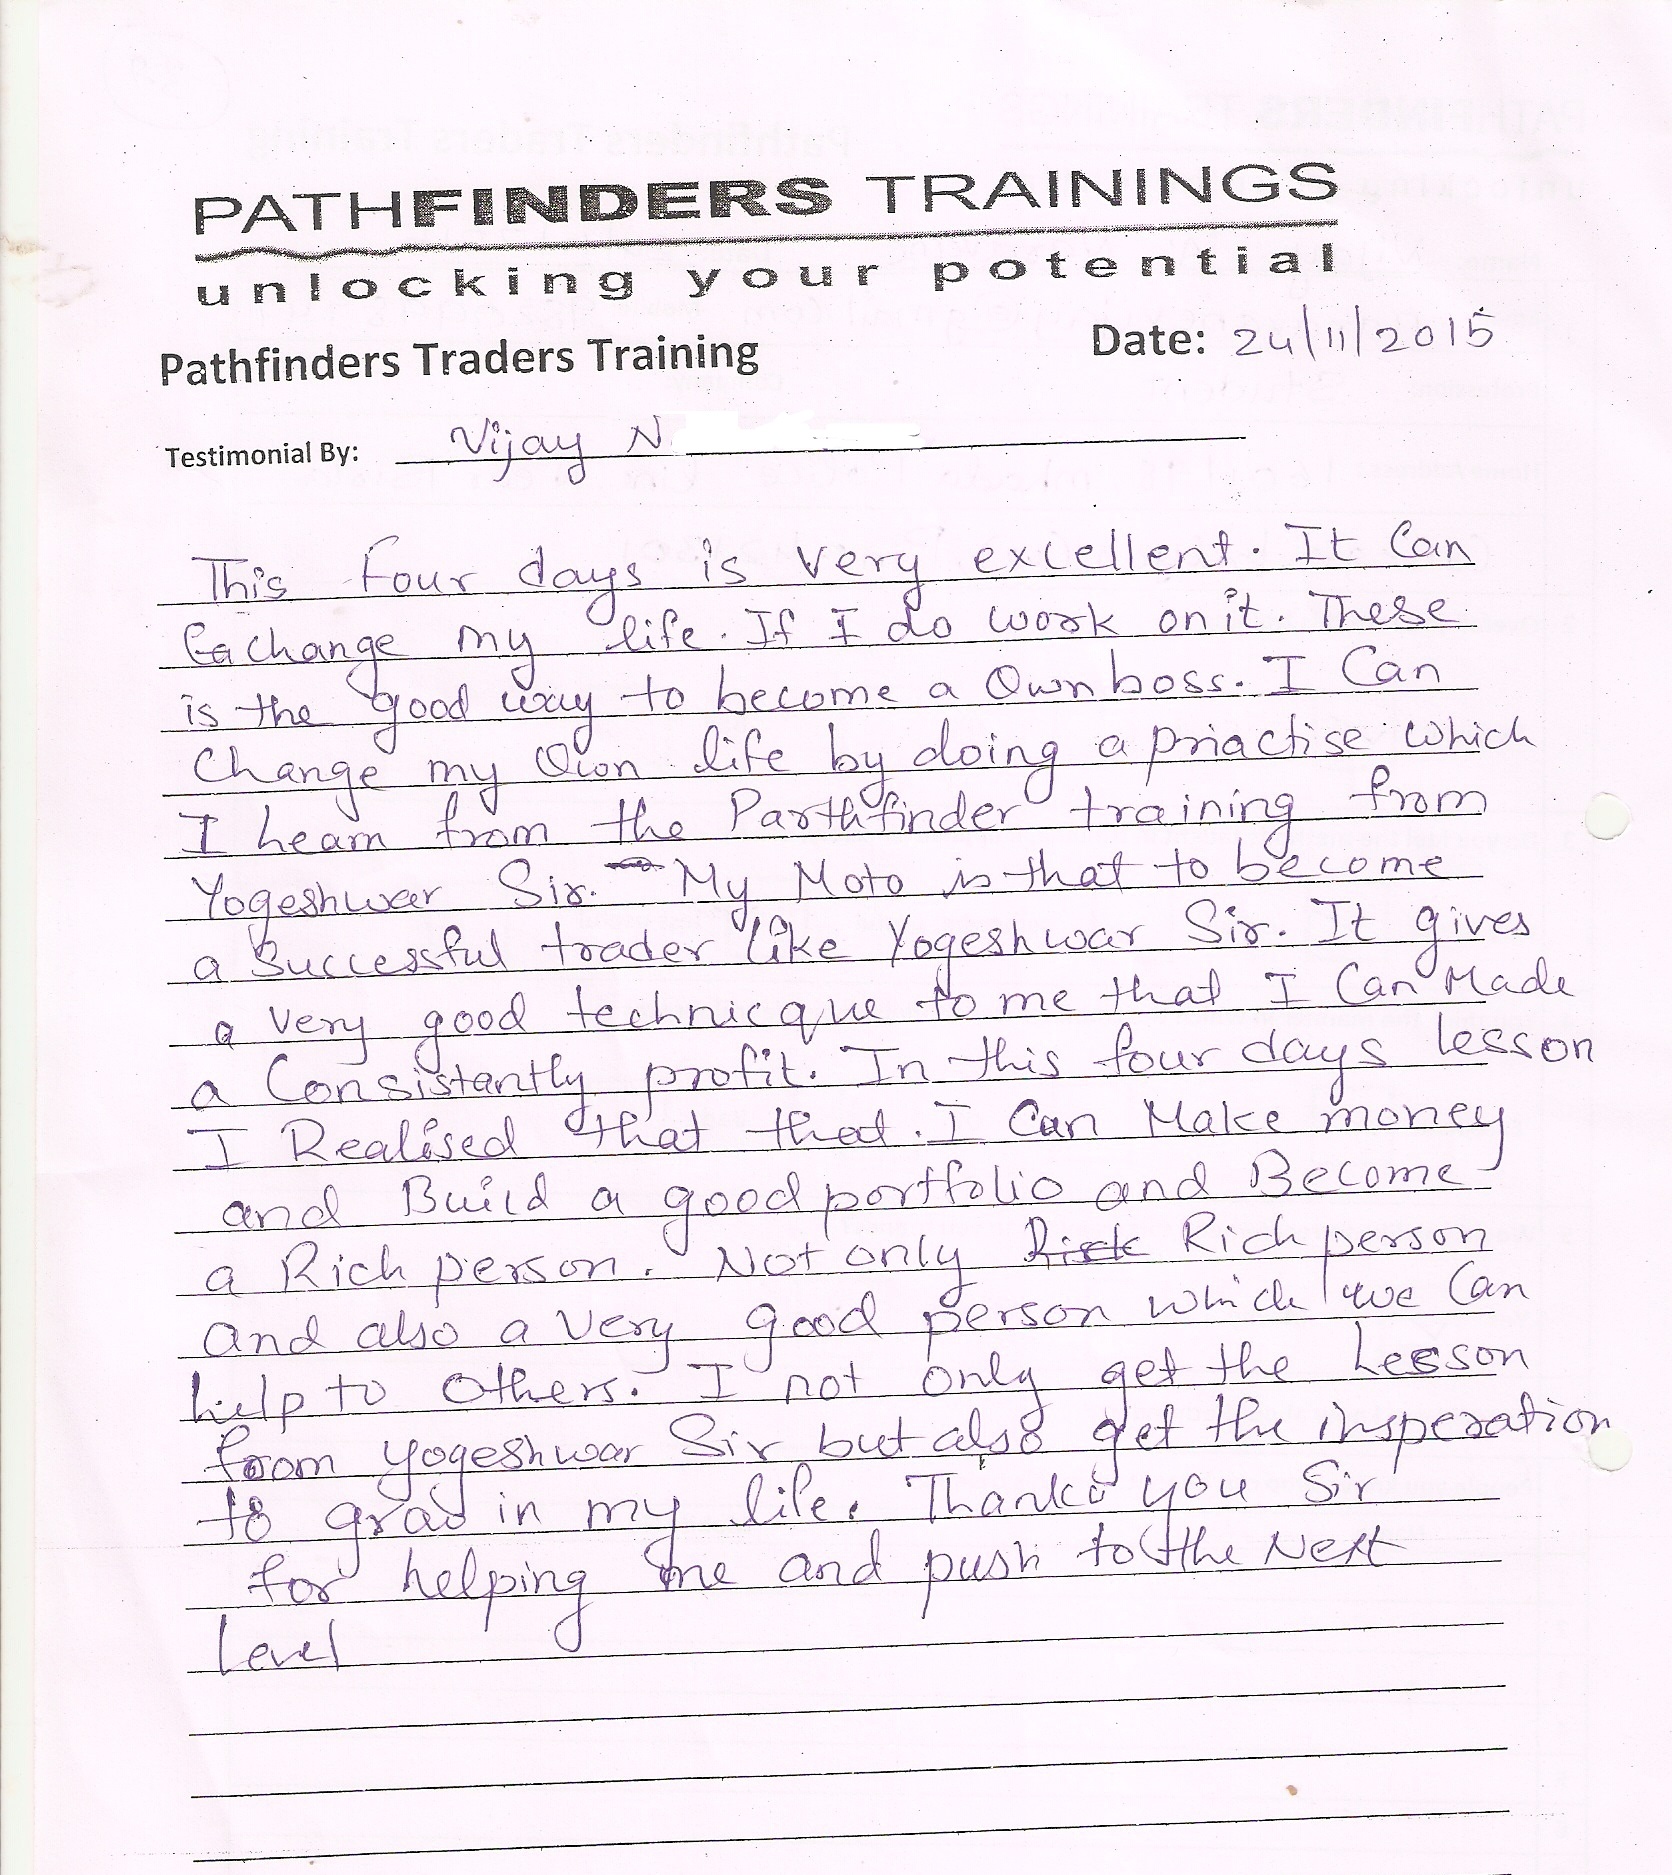 PATHFINDERS TRAININGS
unlocking your potential
Pathfinders Traders Training
Date: 24/11/2015
Testimonial By: Vijay N
This four days is very excellent. It Can
change my life. If I do work on it. These
is the good way to become a Own boss. I Can
Change my Own life by doing a priactise which
I learn from the Parthfinder training from
Yogeshwar Sir. My Moto is that to become
a Successful trader like Yogeshwar Sir. It gives
a very good technicque to me that I Can Made
a Consistantly profit. In this four days lesson
I Realised that that. I Can Make money
and Build a good portfolio and Become
a Rich person. Not only Risk Rich person
and also a very good person which we Can
help to Others. I not only get the Lesson
from Yogeshwar Sir but also get the insperation
to in my life. Thanks you Sir
for helping me and push to the Next
Level